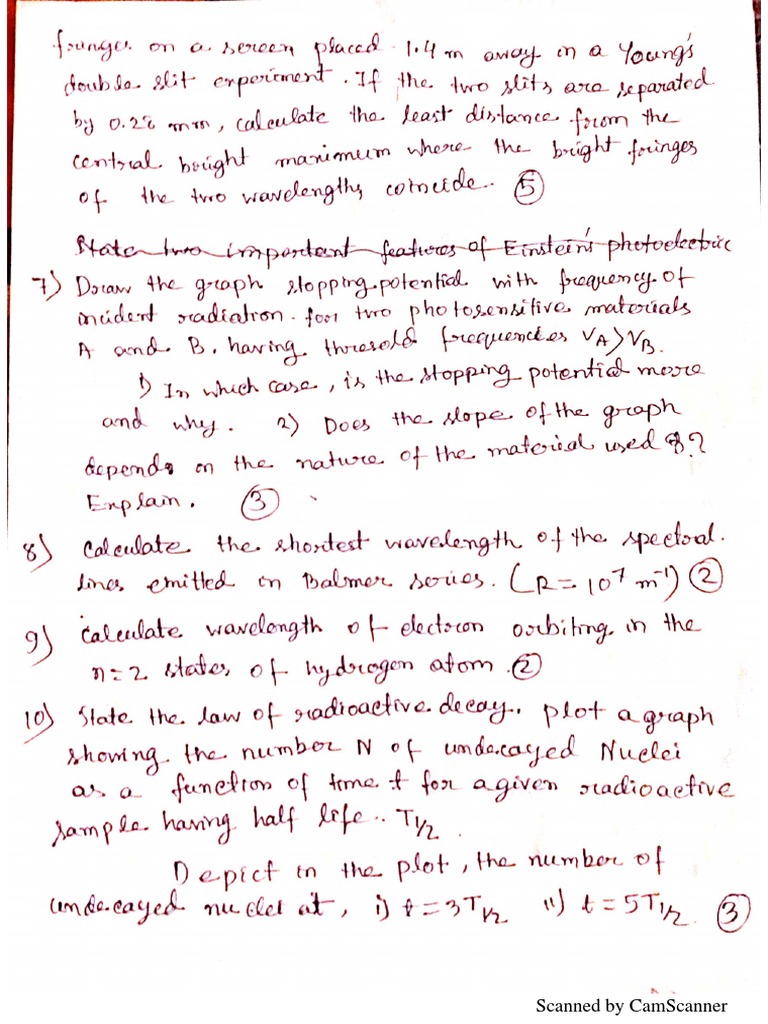 fringes on a screen placed 1.4 m away in a Young's
double slit experiment. If the two slits are separated
by 0.28 mm, calculate the least distance from the
central bright maximum where the bright fringes
of the two wavelengths coincide. (5)
State two important features of Einstein's photoelectric
7) Draw the graph stopping potential with frequency of
incident radiation for two photosensitive materials
A and B, having thresold frequencies νA > νB.
1) In which case, is the stopping potential more
and why. 2) Does the slope of the graph
depends on the nature of the material used ?
Explain. (3)
8) Calculate the shortest wavelength of the spectral
lines emitted in Balmer series. (R = 10⁷ m⁻¹) (2)
9) Calculate wavelength of electron orbiting in the
n=2 states of hydrogen atom. (2)
10) State the law of radioactive decay. plot a graph
showing the number N of undecayed Nuclei
as a function of time t for a given radioactive
sample having half life.. T1/2.
Depict in the plot, the number of
undecayed nuclei at, i) t = 3T1/2 ii) t = 5T1/2. (3)
Scanned by CamScanner